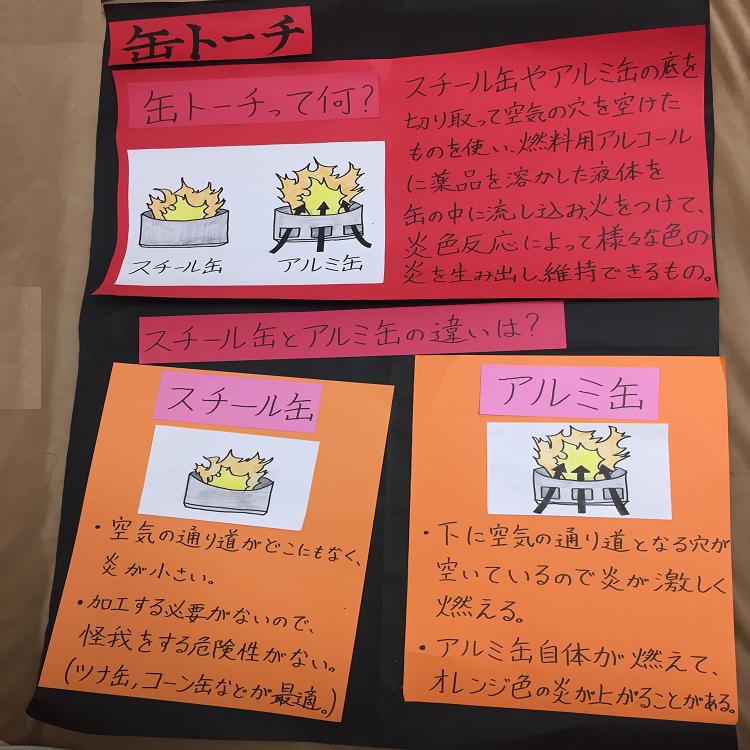 缶トーチ
缶トーチって何?
スチール缶
アルミ缶
スチール缶やアルミ缶の底を
切り取って空気の穴を空けた
ものを使い、燃料用アルコール
に薬品を溶かした液体を
缶の中に流し込み火をつけて、
炎色反応によって様々な色の
炎を生み出し維持できるもの。
スチール缶とアルミ缶の違いは?
スチール缶
・空気の通り道がどこにもなく、
炎が小さい。
・加工する必要がないので、
怪我をする危険性がない。
(ツナ缶,コーン缶などが最適。)
アルミ缶
・下に空気の通り道となる穴が
空いているので炎が激しく
燃える。
・アルミ缶自体が燃えて、
オレンジ色の炎が上がることがある。